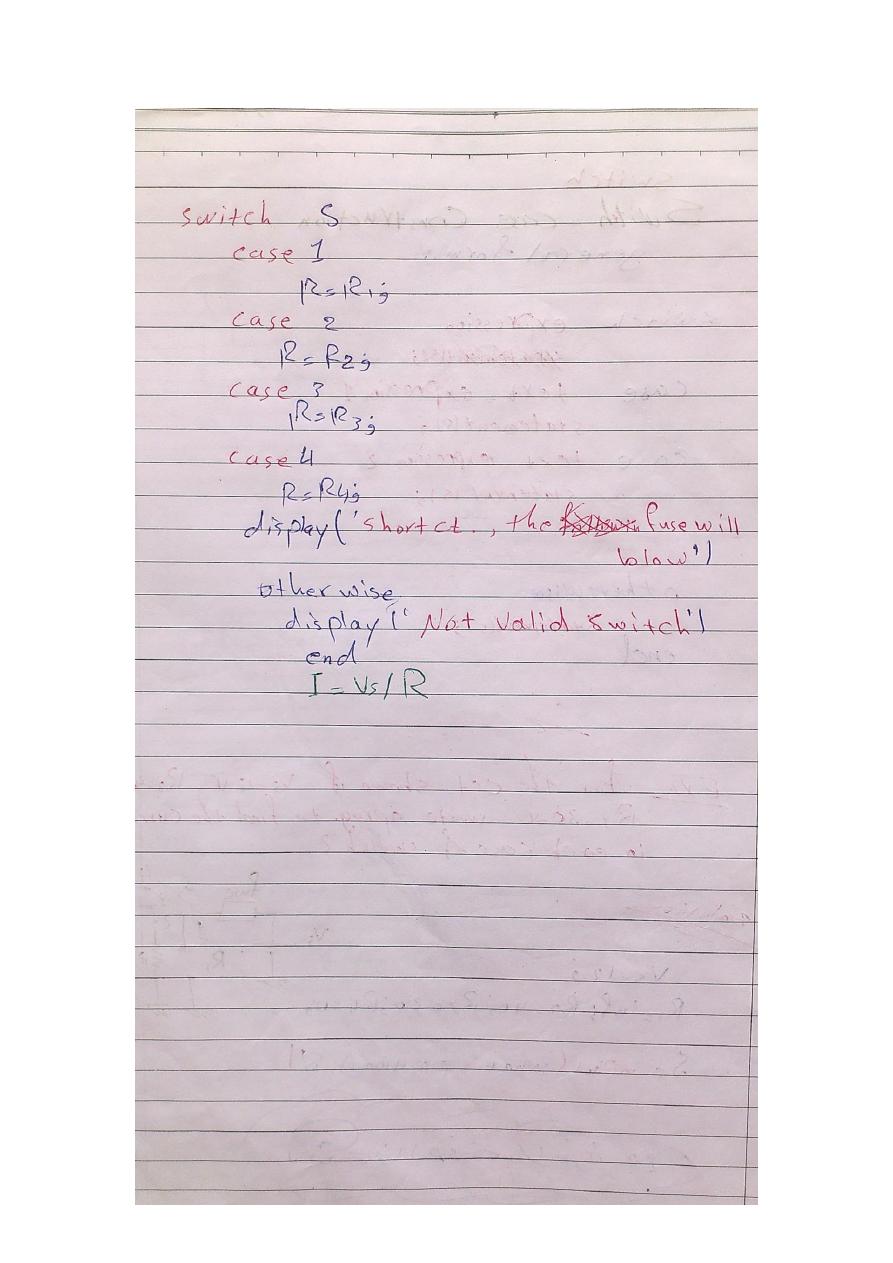 switch S
case 1
R=R1;
case 2
R=R2;
case 3
R=R3;
case 4
R=R4;
display('short ct., the fuse will
blow')
otherwise
display('Not valid switch')
end
I=Vs/R